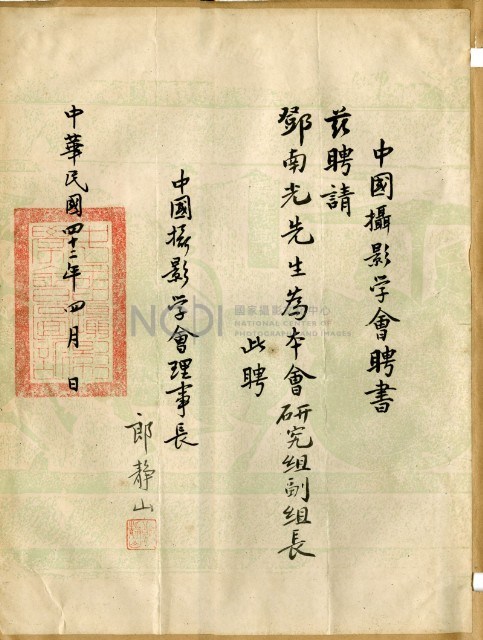 中國攝影学會聘書
兹聘請
鄧南光先生為本會研究組副組長
此聘
中國攝影学會理事長
郎靜山
中華民國四十二年四月 日
國家攝影
中心
NATIONAL CENTER OF
PHOTOGRAPHY AND IMAGES